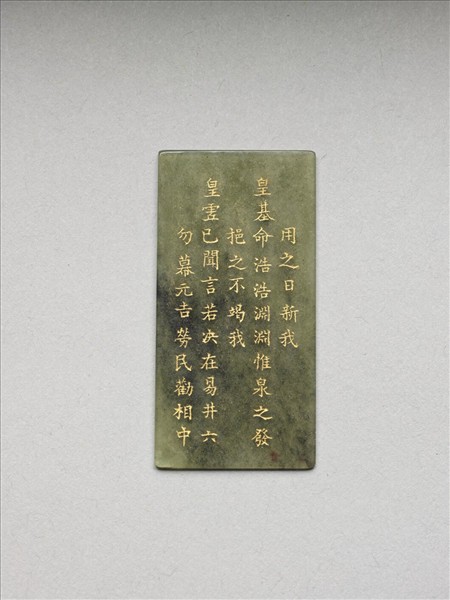 用之日新我
皇基命浩浩淵淵惟泉之發
挹之不竭我
皇已聞言若决在易井六
勿幕元吉勞民勸相中